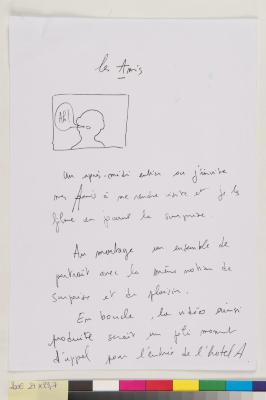 les Amis
AH!
Un après-midi entier où j'invite
mes Amis à me rendre visite et je les
filme en jouant la surprise.
Au montage un ensemble de
portrait avec la même notion de
surprise et du plaisir.
En boucle, la vidéo ainsi
produite serait un joli moment
d'appel pour l'entrée de l'hotel A